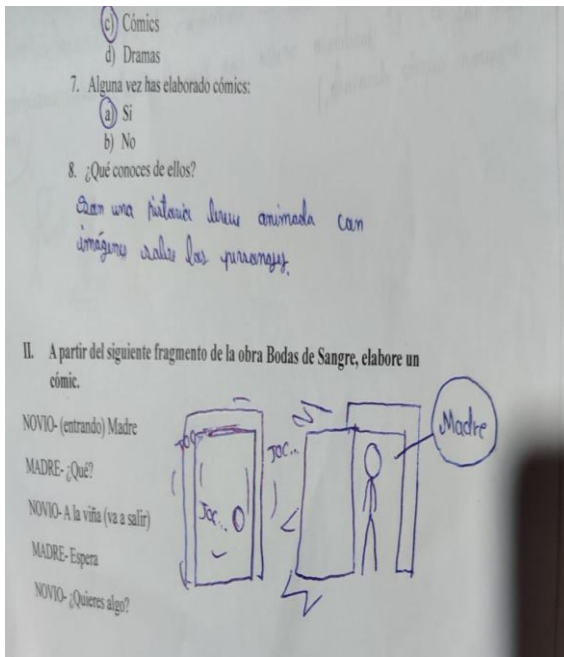 c) Cómics
d) Dramas
7. Alguna vez has elaborado cómics:
a) Si
b) No
8. ¿Qué conoces de ellos?
San una historia breve animada can
imágenes sobre los personajes.
II. A partir del siguiente fragmento de la obra Bodas de Sangre, elabore un
cómic.
NOVIO- (entrando) Madre
MADRE- ¿Qué?
NOVIO- A la viña (va a salir)
MADRE- Espera
NOVIO- ¿Quieres algo?
TOC..
TOC..
TOC..
Madre